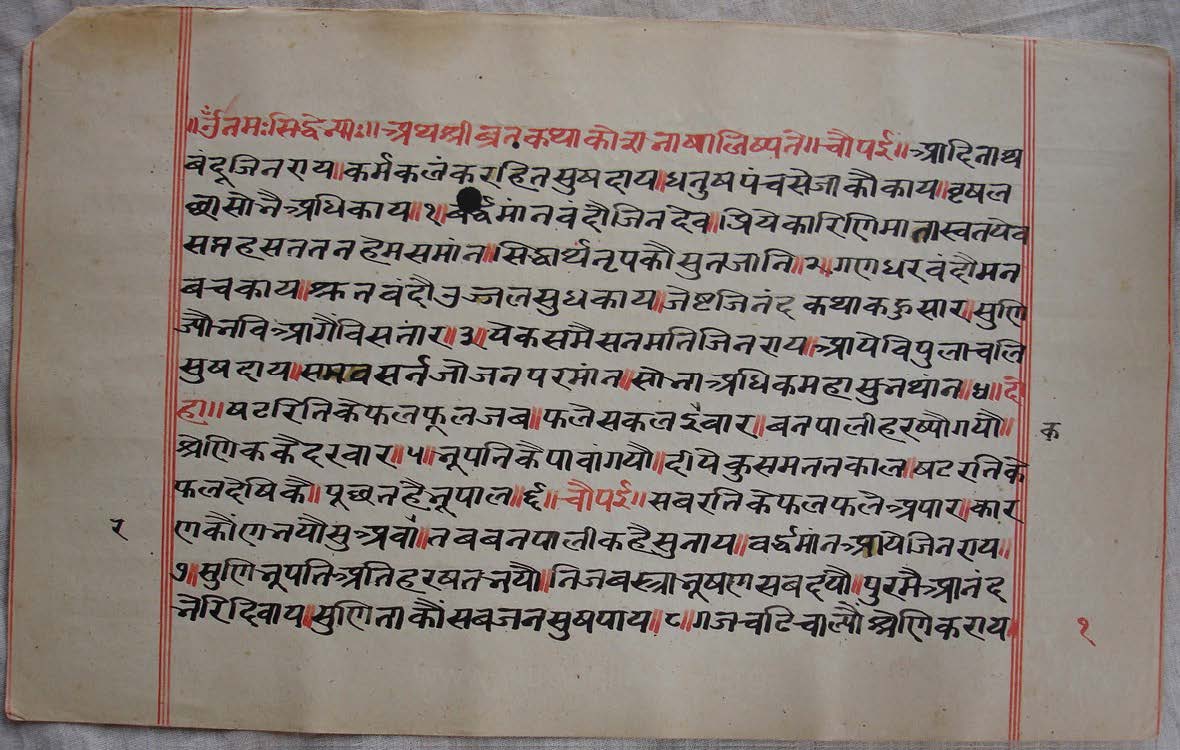 ॥ॐनमःसिद्धेभ्यः॥अथश्रीब्रतकथाकोशनाषालिष्यते॥चौपई॥आदिनाथ
बंदूजिनराय॥कर्मकलंकरहितसुषदाय॥धनुषपंचसेजाकौकाय॥वृषल
छासोनैअधिकाय॥१॥बर्द्धमांनवंदौजिनदेव॥प्रियकारिणिमातास्वतयेव
सप्तहसततनहेमसमांन॥सिद्धार्थनृपकौसुतजानि॥२॥गणधरवंदौमन
बचकाय॥श्रुतवंदौउज्जलसुधकाय॥जेष्टजिनंदकथाकहुसार॥सुणि
ज्यौभविआगैविसतार॥३॥येकसमैसनमतिजिनराय॥आयेविपुलाचलि
सुषदाय॥समवसर्नजोजनपरमांन॥सोभाअधिकमहासुभथान॥४॥दो
हा॥षटरितिकेफलफूलजब॥फलेसकलइंवार॥बनपालीहरष्यौगयौ॥
श्रेणिककैदरवार॥५॥भूपतिकैपावांगयौ॥दीयेकुसमततकाल॥षटरतिके
क
फलदेषिकै॥पूछतहैभूपाल॥६॥चौपई॥सबरतिकेफलफलेअपार॥कार
२
णकौंणभयौसुअवां॥तबबनपालीकहैसुनाय॥वर्द्धमांनआयेजिनराय॥
७॥सुणिभूपतिअतिहरषतभयौ॥निजबस्त्राभूषणसबदयौ॥पुरमैआनंद
भेरिदिवाय॥सुणिताकौसबजनसुषपाय॥८॥गजचढिचाल्यौश्रेणिकराय॥
१